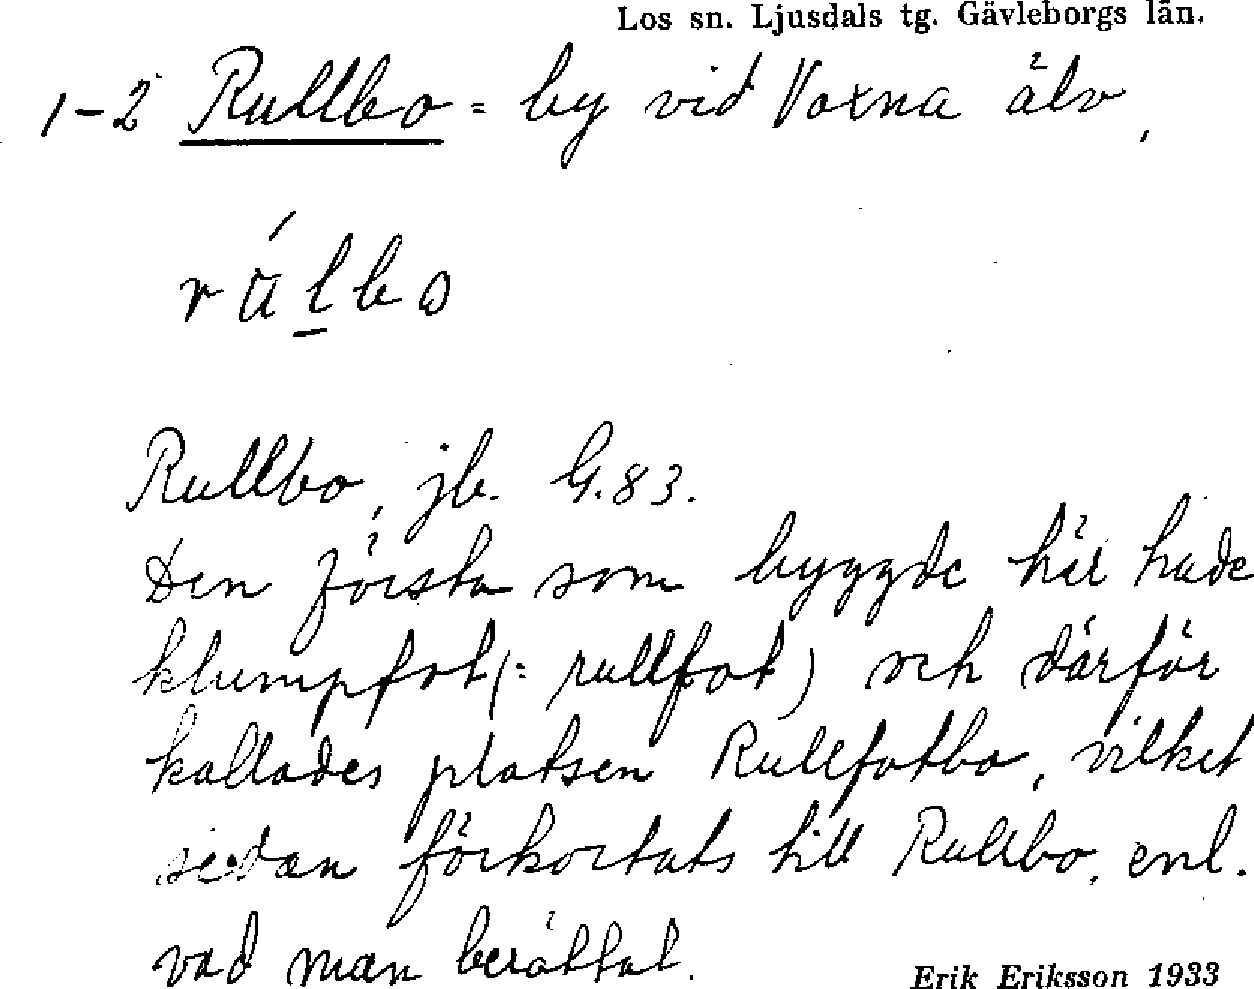 Los sn. Ljusdals tg. Gävleborgs län.
1-2 Rullbo = by vid Voxna älv,
Rullbo, jb. G.83.
Den första som byggde här hade
klumpfot (= rullfot) och därför
kallades platsen Rullfotbo, vilket
sedan förkortats till Rullbo, enl.
vad man berättat.
Erik Eriksson 1933